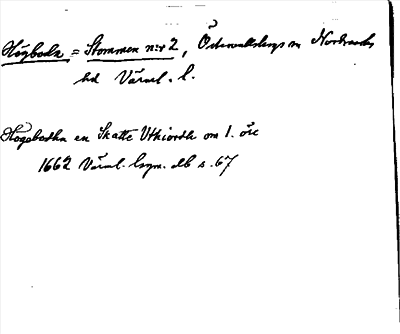 Högboda = Stommen n:r 2, Östervallskogs sn Nordmarks
hd Värml. l.
Högebodha en Skatte Uthiordh om 1. öre
1662 Värml. lsyn. db s. 67